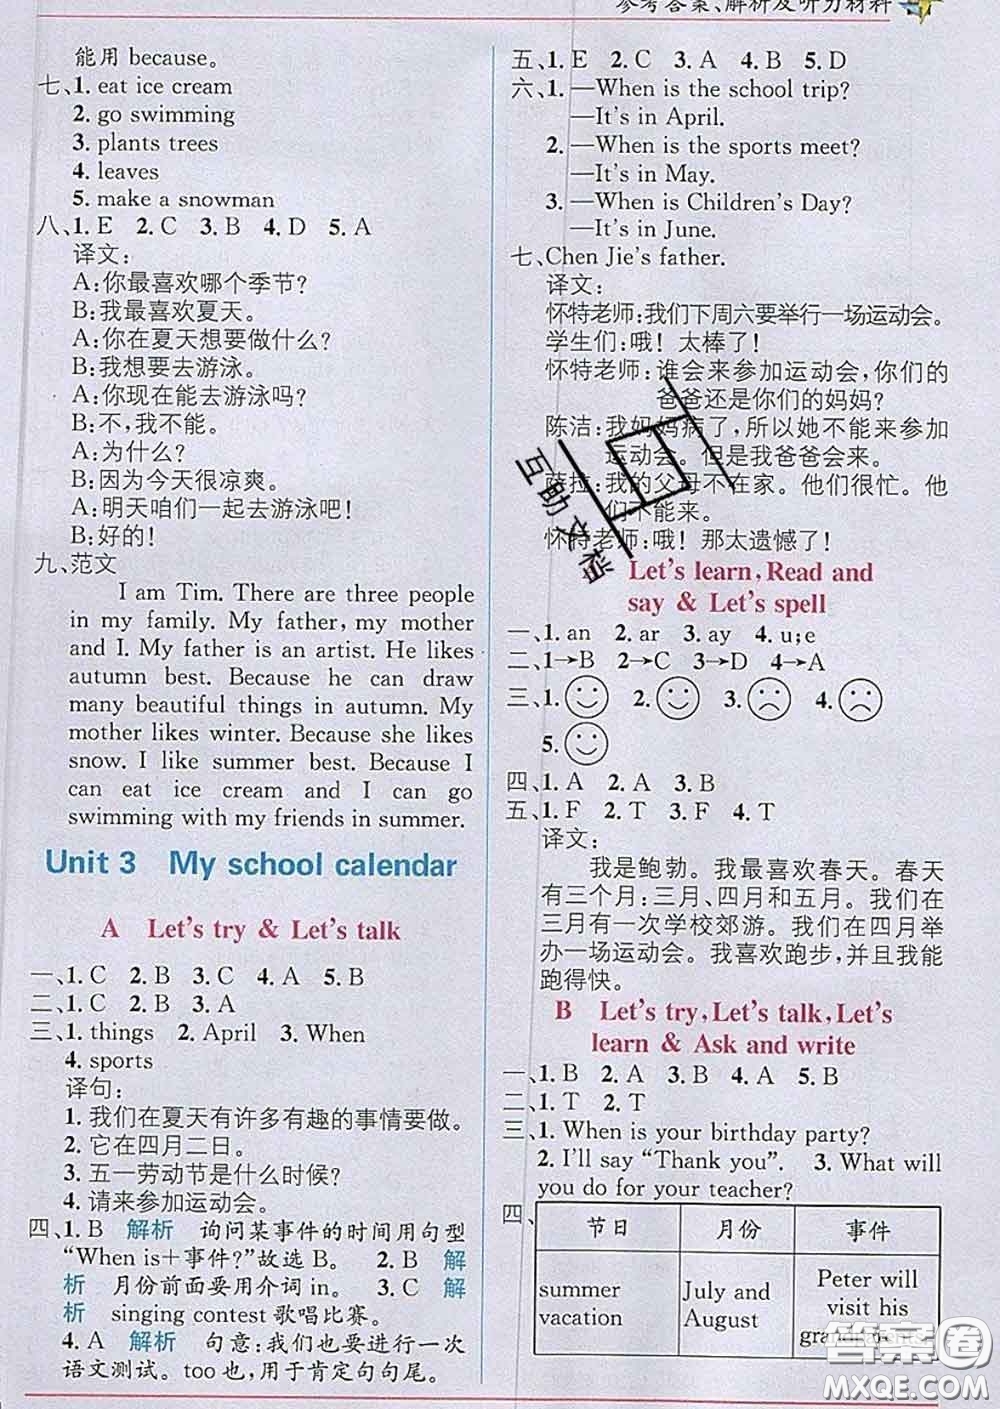 参考答案、解析及听力材料
能用 because。
七、1. eat ice cream
2. go swimming
3. plants trees
4. leaves
5. make a snowman
八、1. E 2. C 3. B 4. D 5. A
译文：
A：你最喜欢哪个季节？
B：我最喜欢夏天。
A：你在夏天想要做什么？
B：我想要去游泳。
A：你现在能去游泳吗？
B：不，我不能。
A：为什么？
B：因为今天很凉爽。
A：明天咱们一起去游泳吧！
B：好的！
九、范文
I am Tim. There are three people
in my family. My father, my mother
and I. My father is an artist. He likes
autumn best. Because he can draw
many beautiful things in autumn. My
mother likes winter. Because she likes
snow. I like summer best. Because I
can eat ice cream and I can go
swimming with my friends in summer.
Unit 3 My school calendar
A Let's try & Let's talk
一、1. C 2. B 3. C 4. A 5. B
二、1. C 2. B 3. A
三、1. things 2. April 3. When
4. sports
译句：
1. 我们在夏天有许多有趣的事情要做。
2. 它在四月二日。
3. 五一劳动节是什么时候？
4. 请来参加运动会。
四、1. B 解析 询问某事件的时间用句型
“When is＋事件?”故选 B。 2. B 解
析 月份前面要用介词 in。 3. C 解
析 singing contest 歌唱比赛。
4. A 解析 句意：我们也要进行一次
语文测试。too 也，用于肯定句句尾。
五、1. E 2. C 3. A 4. B 5. D
六、1. —When is the school trip?
—It's in April.
2. —When is the sports meet?
—It's in May.
3. —When is Children's Day?
—It's in June.
七、Chen Jie's father.
译文：
怀特老师：我们下周六要举行一场运动会。
学生们：哦！太棒了！
怀特老师：谁会来参加运动会，你们的
爸爸还是你们的妈妈？
陈洁：我妈妈病了，所以她不能来参加
运动会。但是我爸爸会来。
萨拉：我的父母不在家。他们很忙。他
们不能来。
怀特老师：哦！那太遗憾了！
互助文档
Let's learn, Read and
say & Let's spell
一、1. an 2. ar 3. ay 4. u;e
二、1→B 2→C 3→D 4→A
三、1. 2. 3. 4.
5.
四、1. A 2. A 3. B
五、1. F 2. T 3. F 4. T
译文：
我是鲍勃。我最喜欢春天。春天
有三个月：三月、四月和五月。我们在
三月有一次学校郊游。我们在四月举
办一场运动会。我喜欢跑步，并且我能
跑得快。
B Let's try, Let's talk, Let's
learn & Ask and write
一、1. B 2. A 3. A 4. A 5. B
二、1. T 2. T
三、1. When is your birthday party?
2. I'll say “Thank you”. 3. What will
you do for your teacher?
四、
节日 月份 事件
summer vacation July and August Peter will visit his grandparents
答案圈
MXQE.COM